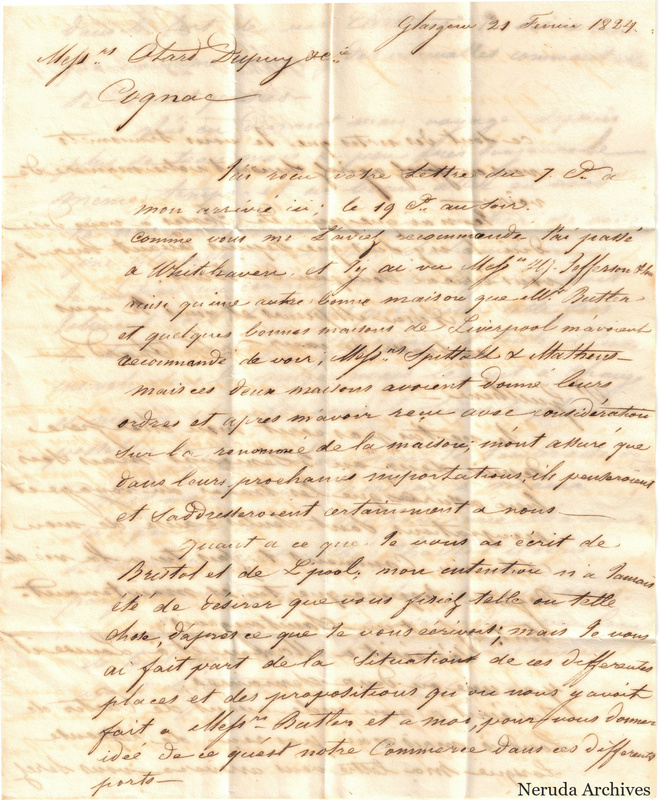 Glasgow 21 Fevrier 1824.
Messrs Otard Dupuy & Cie
Cognac
J'ai recu votre Lettre du 7 Ct. a
mon arrivée ici, le 19 Ct. au soir.
Comme vous me L'aviez recommandé J'ai passé
a Whitehaven et J'y ai vu Messrs Jefferson
ainsi qu'une autre bonne maison que Mr. Butler
et quelques bonnes maisons de Liverpool m'avoient
recommandé de voir, Messrs Spittall & Mathews
mais ces deux maisons avoient donné leurs
ordres et apres m'avoir recu avec considération
sur la renommé de la maison, m'ont assuré que
dans leurs prochaines importations, ils penseroient
et s'addresseroient certainement a nous—
Quant a ce que Je vous ai écrit de
Bristol et de L'pool, mon intention n'a Jamais
été de désirer que vous fissiez telle ou telle
chose, d'apres ce que Je vous écrivois, mais Je vous
ai fait part de la Situation de ces differentes
places et des propositions qu'on nous y avoit
fait a Messrs Butler et a moi, pour vous donner
idée de ce quest notre Commerce dans ces differents
ports—
Neruda Archives